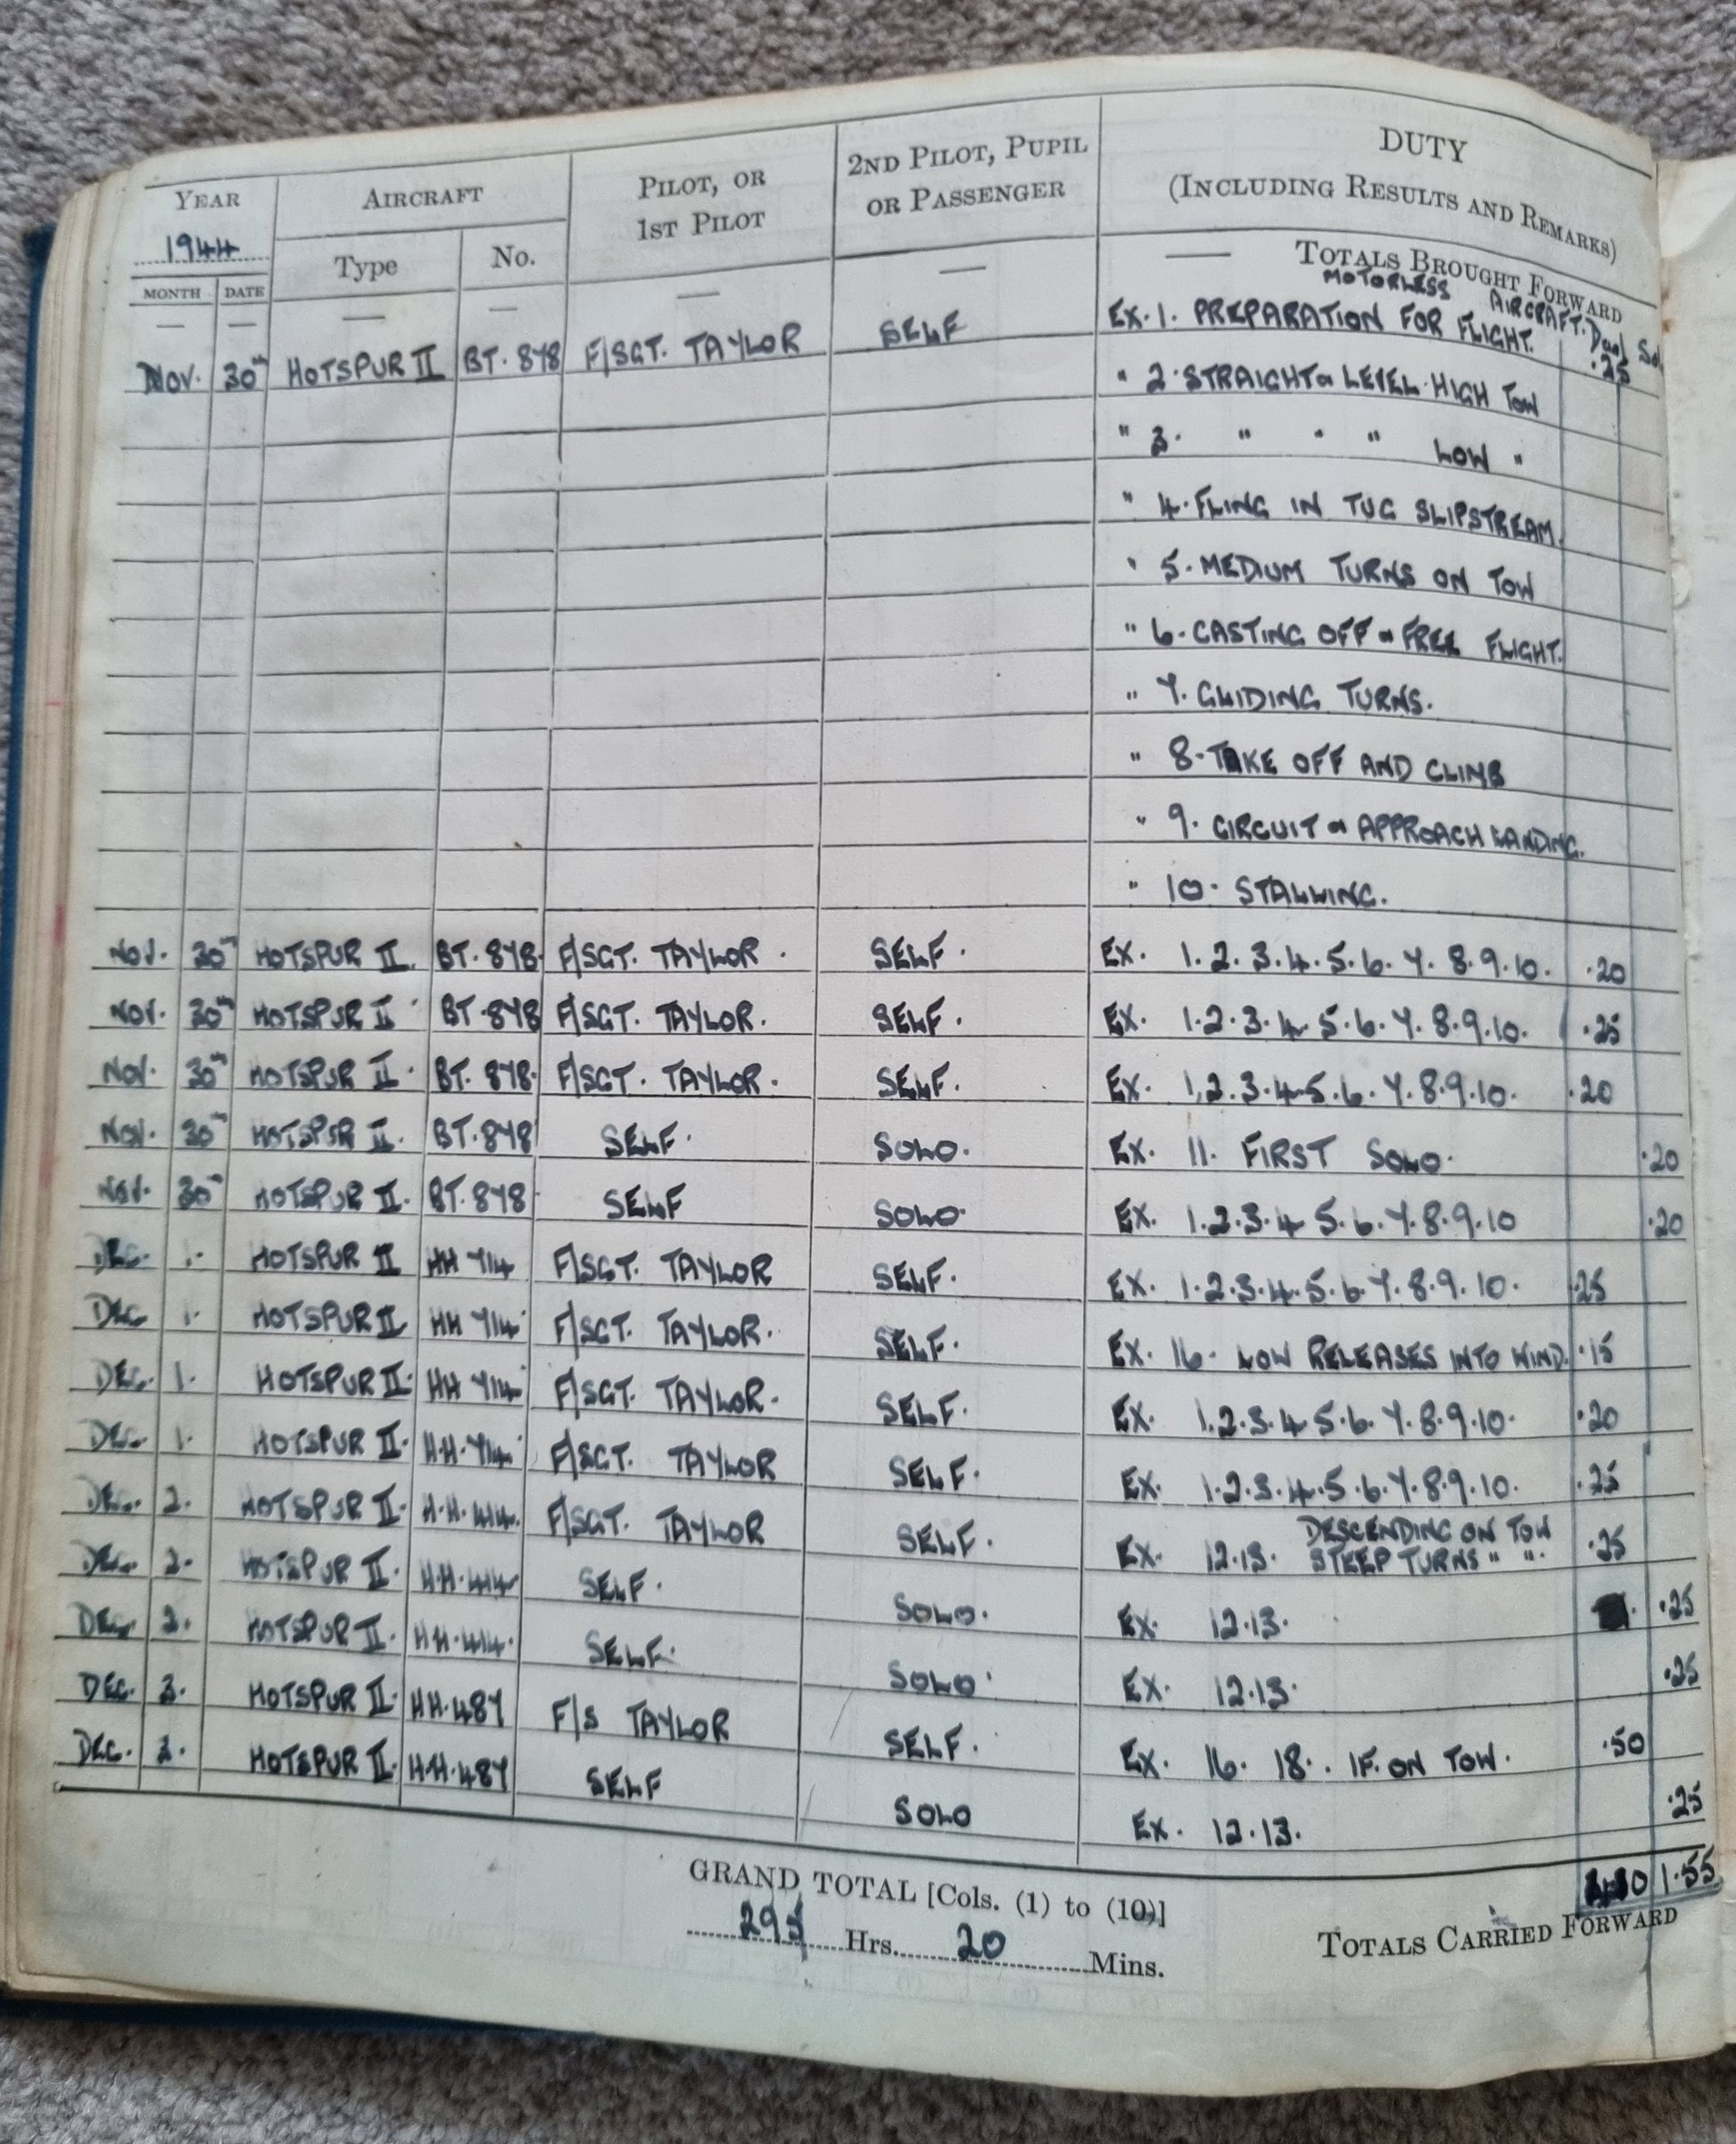 YEAR AIRCRAFT PILOT, OR 1ST PILOT 2ND PILOT, PUPIL OR PASSENGER DUTY (INCLUDING RESULTS AND REMARKS)
1944 Type No.
MONTH DATE
— — — — — — — TOTALS BROUGHT FORWARD
MOTORLESS AIRCRAFT. Dual Sol
NOV. 30th HOTSPUR II BT. 878 F/SGT. TAYLOR SELF EX. 1. PREPARATION FOR FLIGHT. .25
" 2. STRAIGHT & LEVEL. HIGH TOW
" 3. " " " LOW "
" 4. FLING IN TUG SLIPSTREAM.
" 5. MEDIUM TURNS ON TOW
" 6. CASTING OFF & FREE FLIGHT.
" 7. GLIDING TURNS.
" 8. TAKE OFF AND CLIMB
" 9. CIRCUIT & APPROACH LANDING.
" 10. STALLING.
NOV. 30th HOTSPUR II. BT. 878. F/SGT. TAYLOR. SELF. EX. 1. 2. 3. 4. 5. 6. 7. 8. 9. 10. .20
NOV. 30th HOTSPUR II. BT. 878 F/SGT. TAYLOR. SELF. EX. 1.2.3.4.5.6.7.8.9.10. .25
NOV. 30th HOTSPUR II. BT. 878. F/SGT. TAYLOR. SELF. EX. 1,2.3.4.5.6.7.8.9.10. .20
NOV. 30th HOTSPUR II. BT. 878 SELF. SOLO. EX. 11. FIRST SOLO. .20
NOV. 30th HOTSPUR II. BT. 878 SELF SOLO. EX. 1.2.3.4 5.6.7.8.9.10 .20
DEC. 1. HOTSPUR II HH 714 F/SGT. TAYLOR SELF. EX. 1.2.3.4.5.6.7.8.9.10. .25
DEC 1. HOTSPUR II HH 714 F/SGT. TAYLOR. SELF. EX. 16. LOW RELEASES INTO WIND. .15
DEC. 1. HOTSPUR II. HH 714 F/SGT. TAYLOR. SELF. EX. 1.2.3.4 5.6.7.8.9.10. .20
DEC. 1. HOTSPUR II. H.H. 714 F/SGT. TAYLOR SELF. EX. 1.2.3.4.5.6.7.8.9.10. .25
DEC. 2. HOTSPUR II. H.H. 414. F/SGT. TAYLOR SELF. EX. 12.13. DESCENDING ON TOW
STEEP TURNS " ". .25
DEC. 2. HOTSPUR II. H.H. 414 SELF. SOLO. EX. 12.13. .25
DEC. 2. HOTSPUR II. HH. 414. SELF. SOLO. EX. 12.13. .25
DEC. 2. HOTSPUR II. HH. 487 F/S TAYLOR SELF. EX. 16. 18. . IF. ON TOW. .50
DEC. 2. HOTSPUR II. H.H. 487 SELF SOLO EX. 12.13. .25
1.55
GRAND TOTAL [Cols. (1) to (10)]
295 Hrs. 20 Mins.
TOTALS CARRIED FORWARD